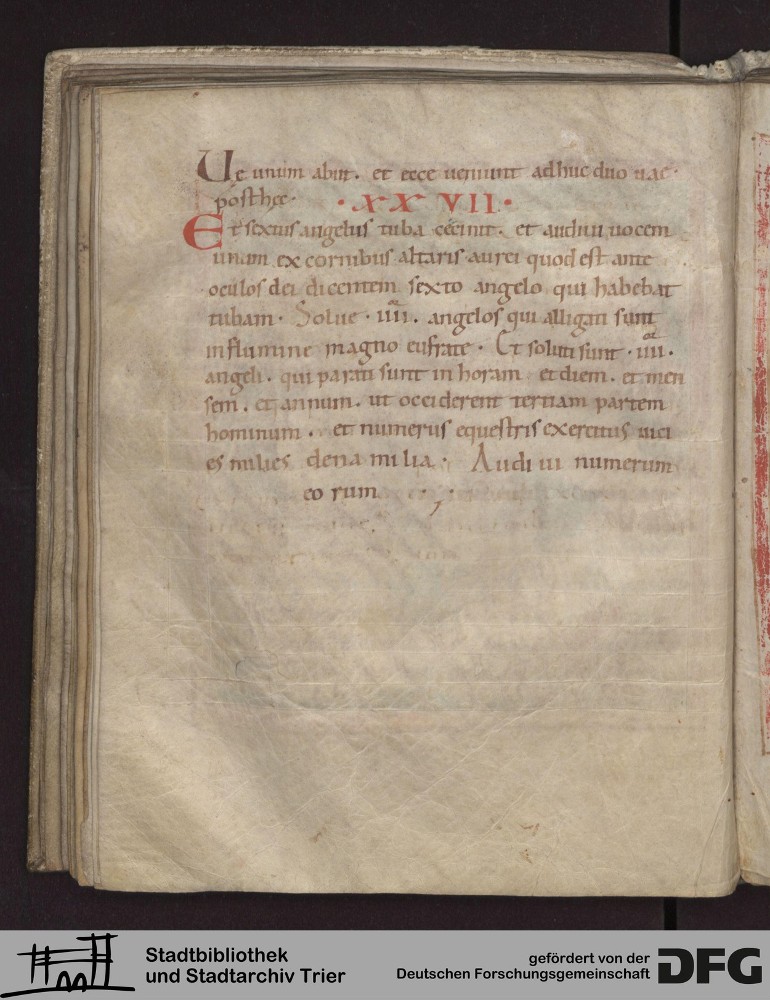 Ue unum abiit. et ecce ueniunt adhuc duo uae.
posthęc. · XXVII ·
Et sextus angelus tuba cecinit. et audiui uocem
unum ex cornibus altaris aurei quod est ante
oculos dei dicentem sexto angelo qui habebat
tubam. Solue .IIIIor. angelos qui alligati sunt
in flumine magno eufrate. Et soluti sunt .IIIIor.
angeli. qui parati sunt in horam et diem. et men
sem. et annum. ut occiderent tertiam partem
hominum. et numerus equestris exercitus uici
es milies dena milia. Audiui numerum
eorum
Stadtbibliothek
und Stadtarchiv Trier
gefördert von der
Deutschen Forschungsgemeinschaft
DFG